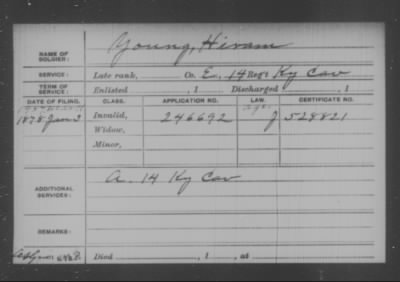 NAME OF SOLDIER: Young, Hiram
SERVICE: Late rank, Co. E, 14 Reg't Ky Cav
TERM OF SERVICE: Enlisted , 1 Discharged , 1
DATE OF FILING. CLASS. APPLICATION NO. LAW. CERTIFICATE NO.
1878 Jan 3 Invalid, 246692 J 528821
Widow,
Minor,
ADDITIONAL SERVICES: A. 14 Ky Cav
REMARKS:
Died , 1 , at